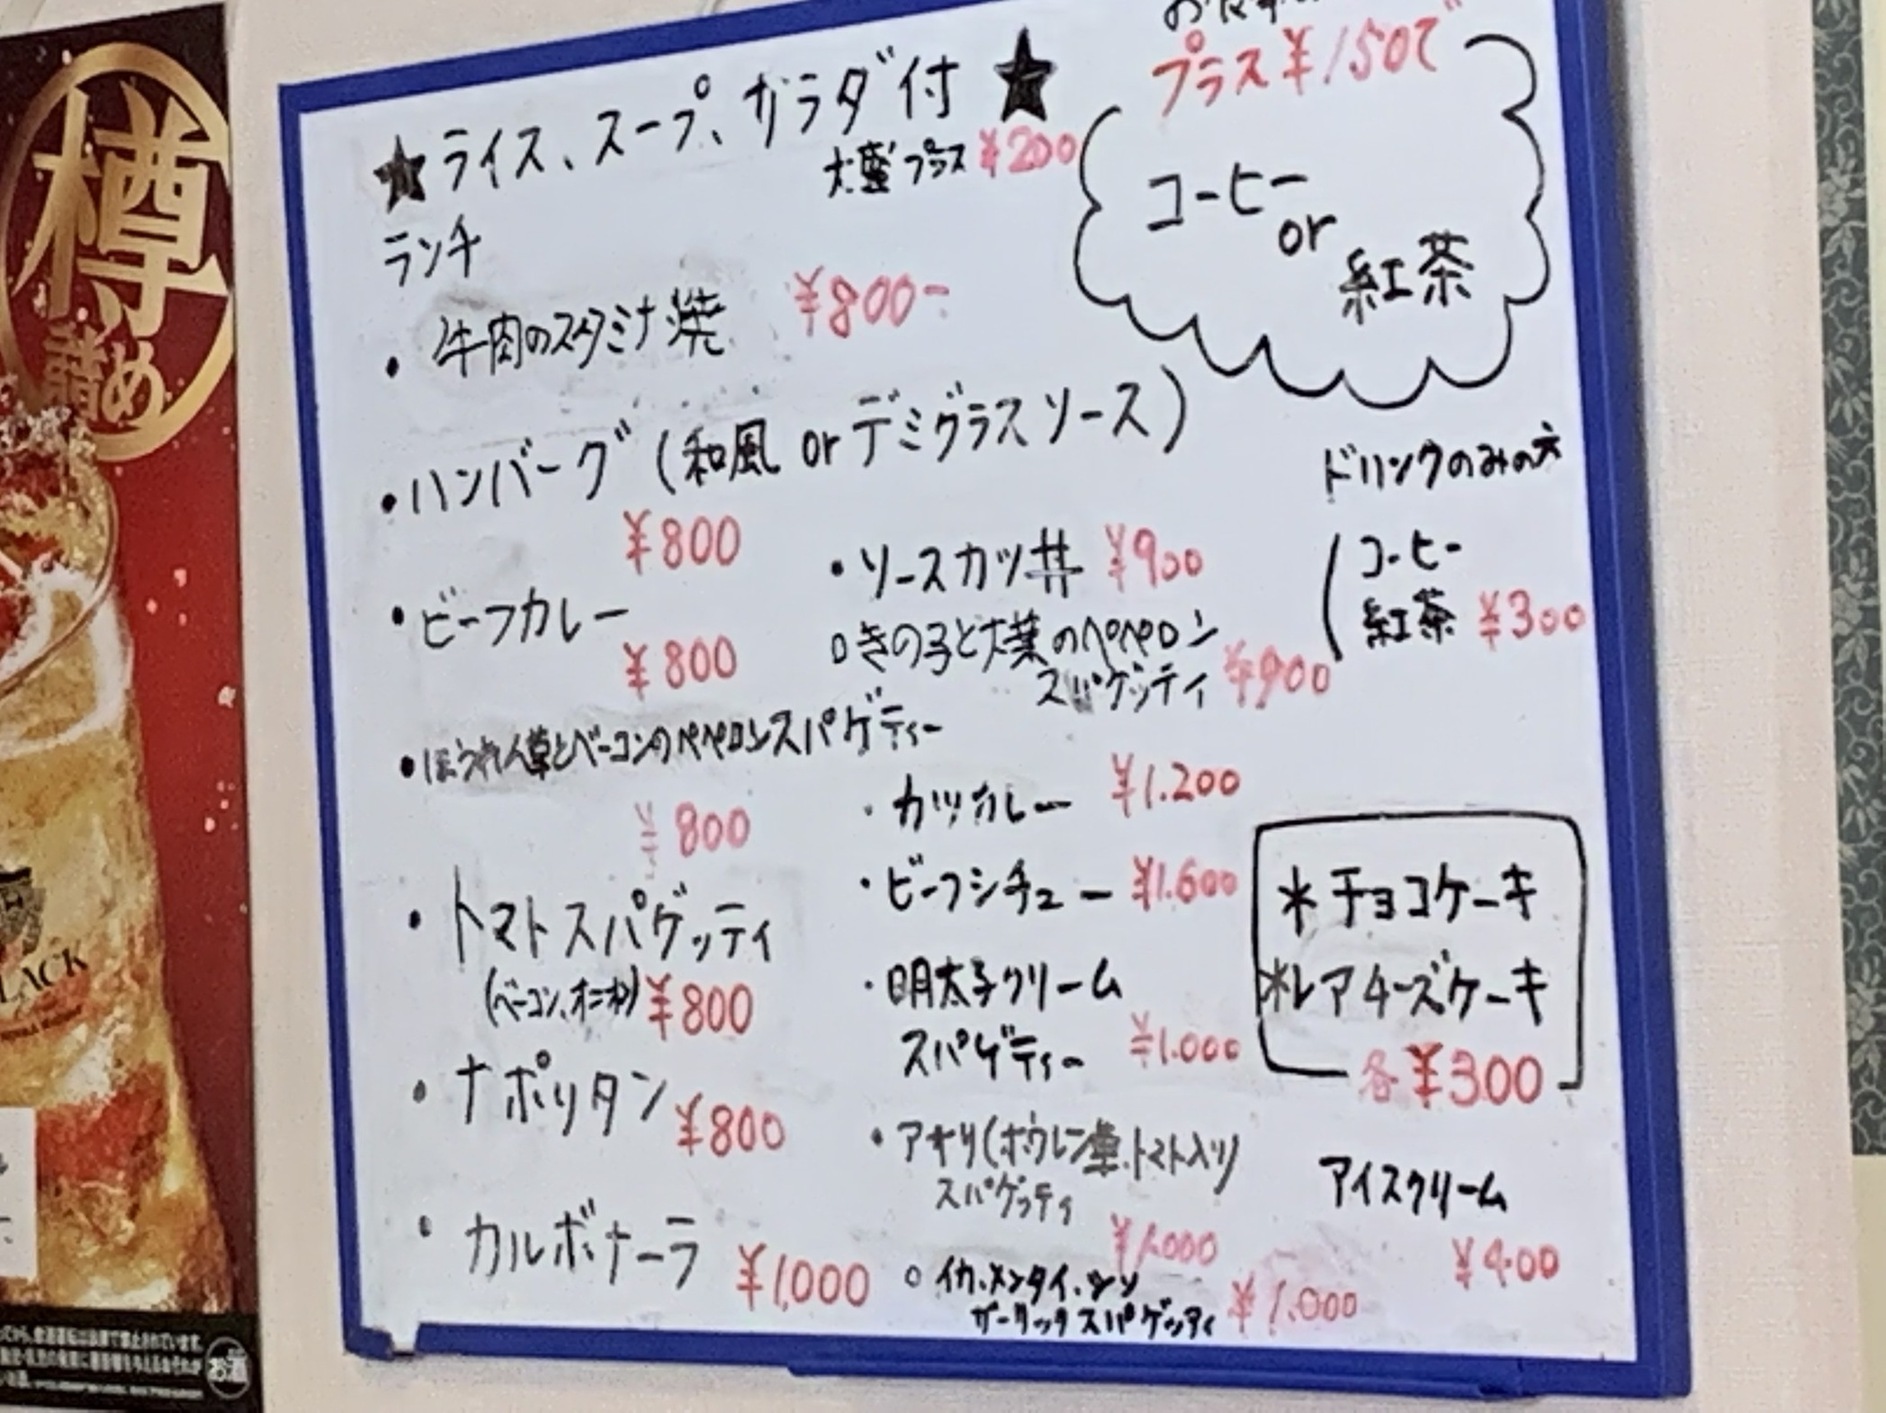 ★ライス、スープ、サラダ付★
大盛プラス ¥200
ランチ
・牛肉のスタミナ焼 ¥800-
・ハンバーグ(和風 or デミグラスソース)
¥800
・ビーフカレー
¥800
・ほうれん草とベーコンのペペロンスパゲティー
¥800
・トマトスパゲッティ
(ベーコン、オニオン) ¥800
・ナポリタン ¥800
・カルボナーラ ¥1,000
・ソースカツ丼 ¥900
○きの子と大葉のペペロン
スパゲッティ ¥900
・カツカレー ¥1.200
・ビーフシチュー ¥1.600
・明太子クリーム
スパゲティー ¥1.000
・アサリ(ホウレン草、トマト入り)
スパゲッティ
¥1.000
○イカ、メンタイ、シソ
ガーリックスパゲッティ ¥1.000
プラス¥150で
コーヒー
or
紅茶
ドリンクのみの方
コーヒー
紅茶 ¥300
*チョコケーキ
*レアチーズケーキ
各¥300
アイスクリーム
¥400
樽
詰め
LACK
お酒